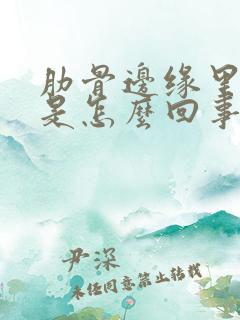 肋骨邊缘里
是怎麼回事
尹深
未经同意禁止转载